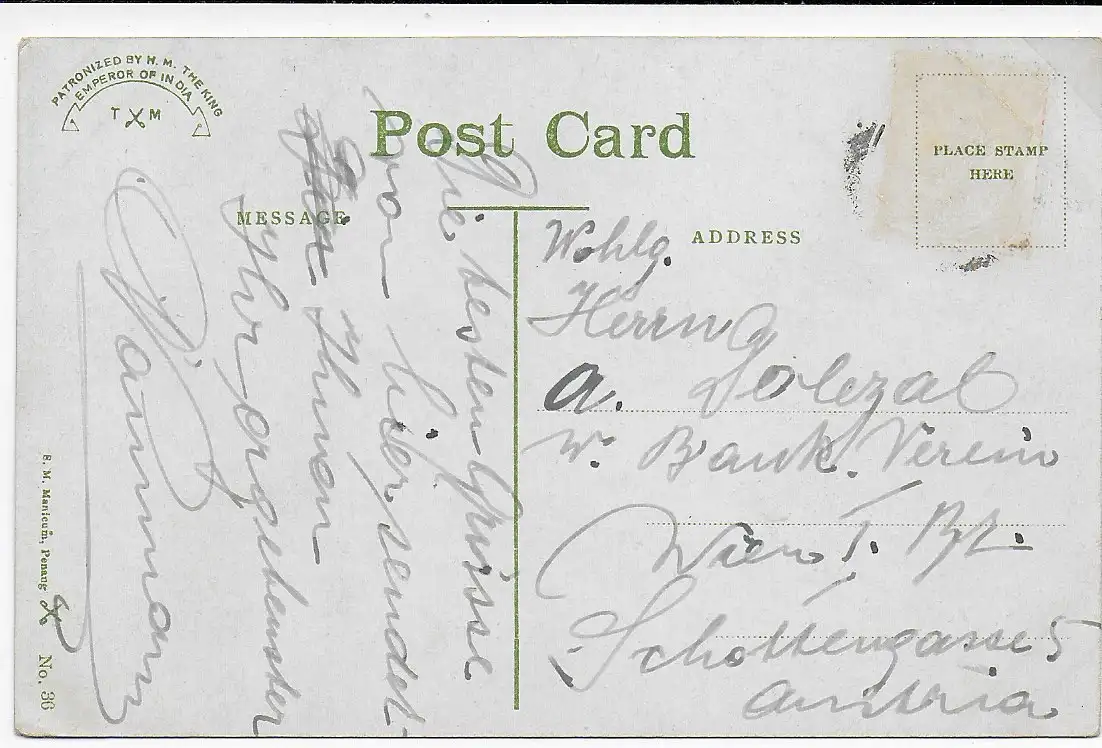 PATRONIZED BY H. M. THE KING
EMPEROR OF INDIA
T M
Post Card
PLACE STAMP
HERE
MESSAGE
ADDRESS
Die besten Grüsse
von hier sendet
Ihnen
Ihr ergebenster
Wohlg.
Herrn
A. Dolezal
W. Bank. Verein
Wien I. Bz.
Schottengasse 5
Austria
S. M. Manicum, Penang
No. 36